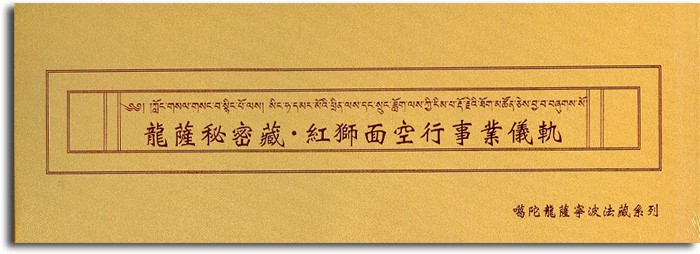 ༄༅། །ཀློང་གསལ་གསང་བ་སྙིང་པོ་ལས། སིང་ཧ་དམར་མོའི་ཕྲིན་ལས་དང་སྲུང་ཟློག་ལས་ཀྱི་རིམ་པ་རྡོ་རྗེའི་ཐོག་མཚོན་ཅེས་བྱ་བ་བཞུགས་སོ།
龍薩秘密藏·紅獅面空行事業儀軌
噶陀龍薩寧波法藏系列